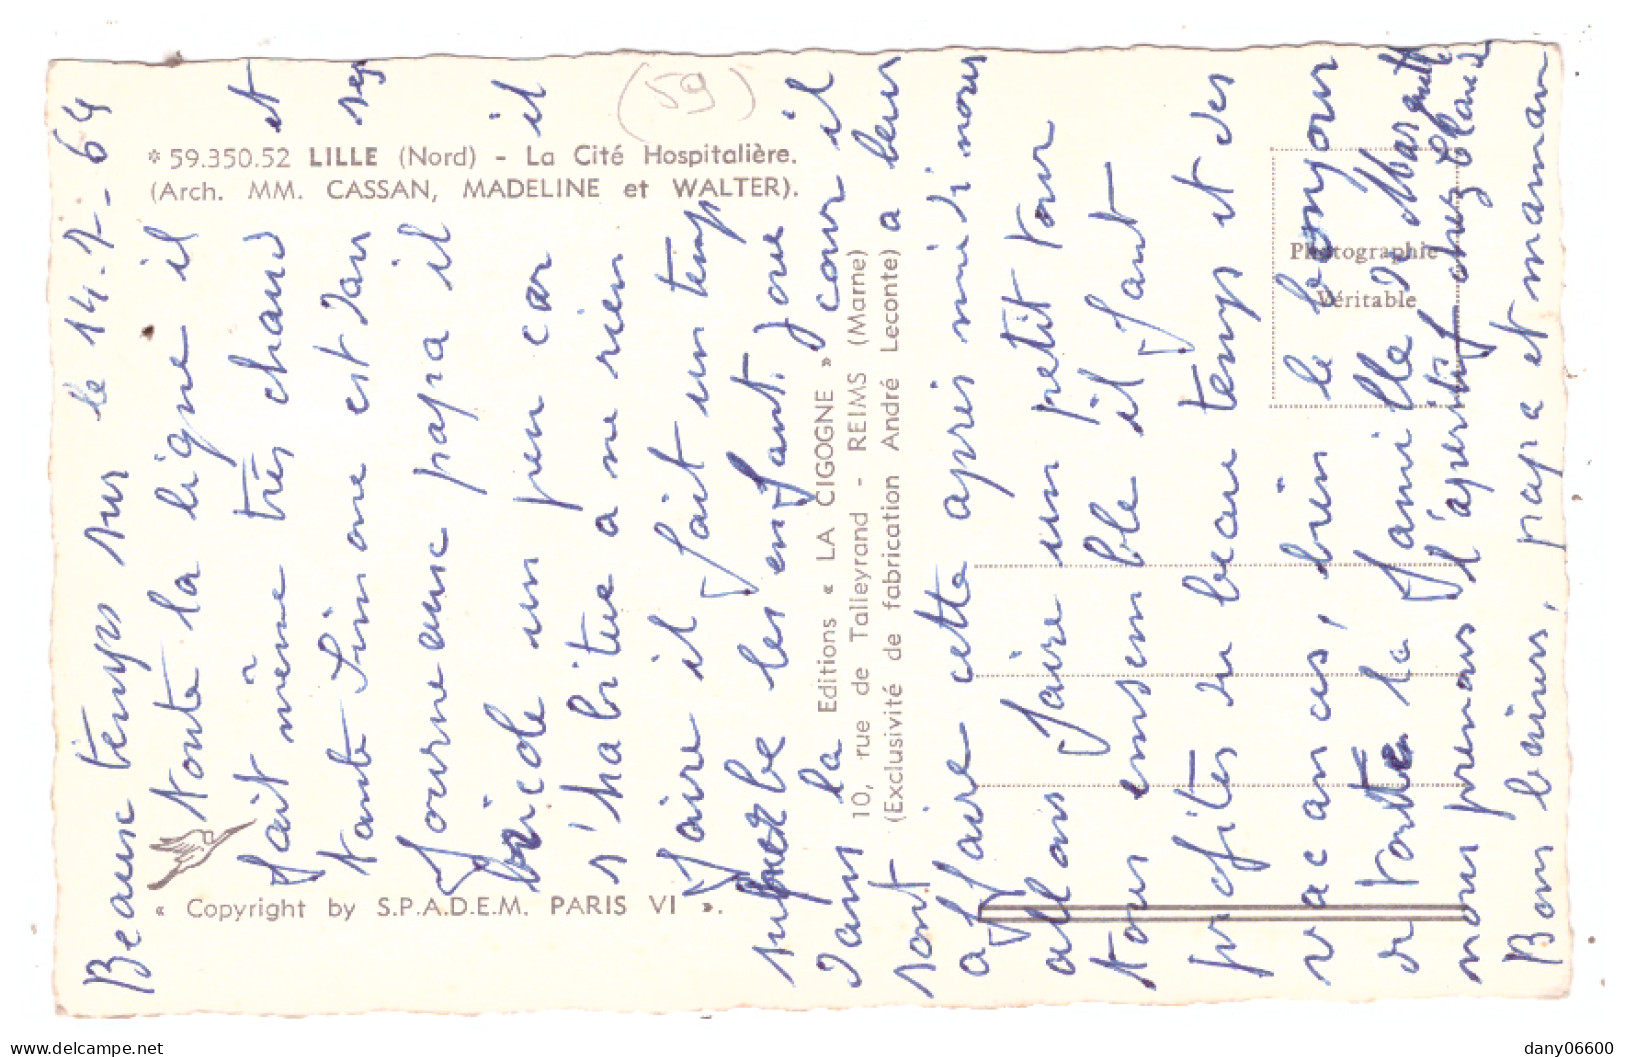 * 59.350.52 LILLE (Nord) - La Cité Hospitalière.
(Arch. MM. CASSAN, MADELINE et WALTER).
(59)
Editions « LA CIGOGNE »
10, rue de Talleyrand - REIMS (Marne)
(Exclusivité de fabrication André Leconte)
« Copyright by S.P.A.D.E.M. PARIS VI ».
Photographie
Véritable
le 14-7-64
Beaux temps sur
toute la ligne il
fait même très chaud et
tante Simone est dans
fourneaux papa il
bricole un peu car il
s'habitue a ne rien
faire il fait un temp
superbe les enfant joue
dans la cour il
sont a leur
affaire cette après midi nous
allons faire un petit tour
tous ensemble il faut
profiter du beau temps et des
vacances, bien le bonjour
de toute la famille de
nous prenons l'aperitif chez Claud
Bons baisers, papa et maman
delcampe.net
dany06600